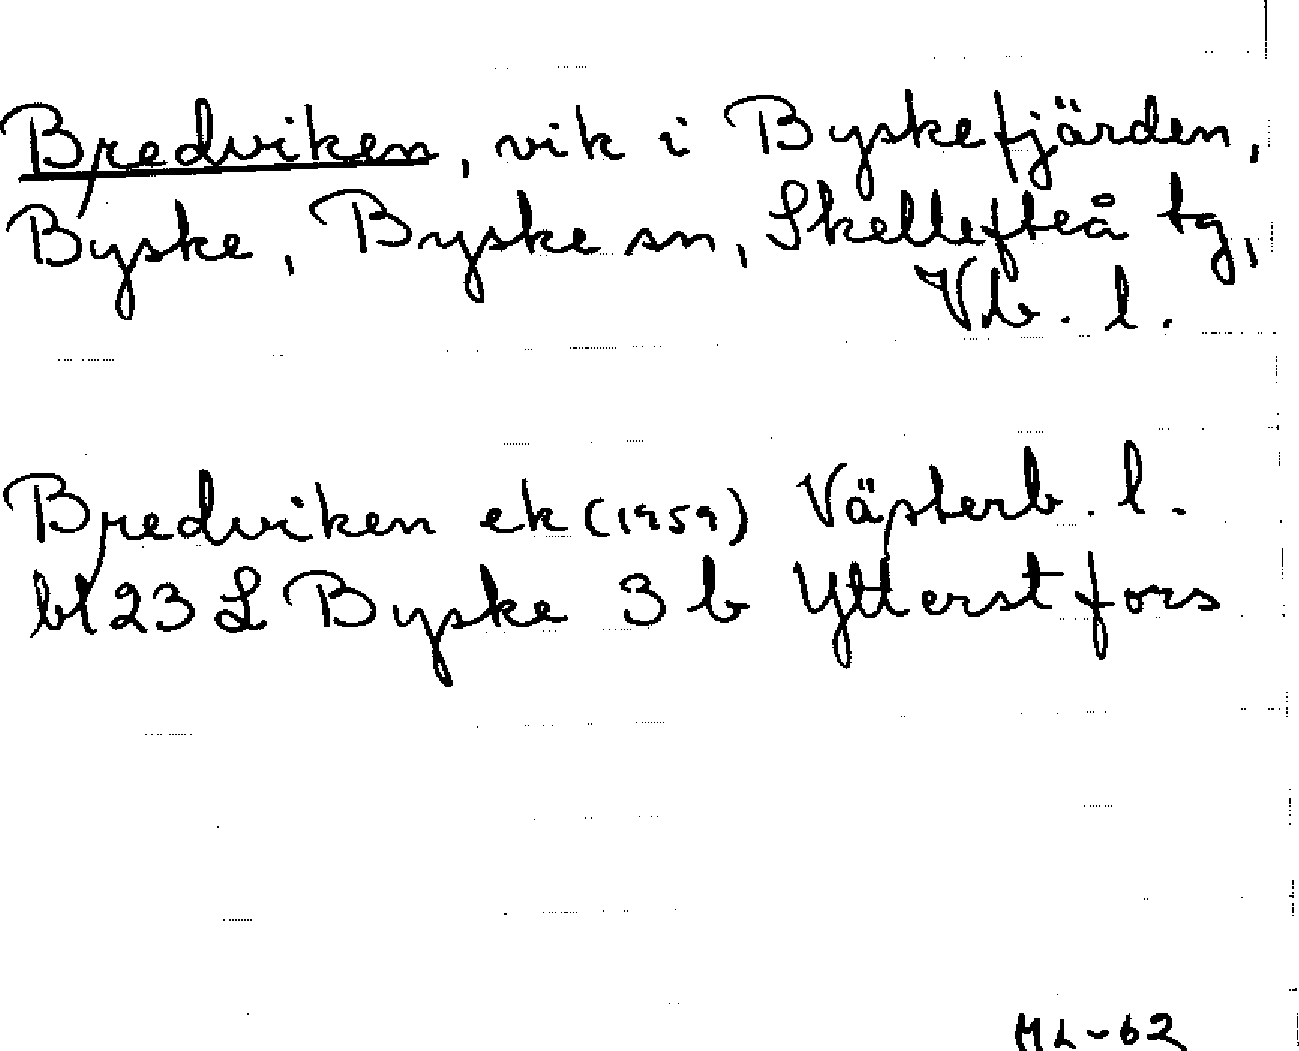 Bredviken, vik i Byskefjärden,
Byske, Byske sn, Skellefteå tg,
Vb. l.
Bredviken ek (1959) Västerb. l.
bl 23 L Byske 3 b Ytterstfors
ML-62